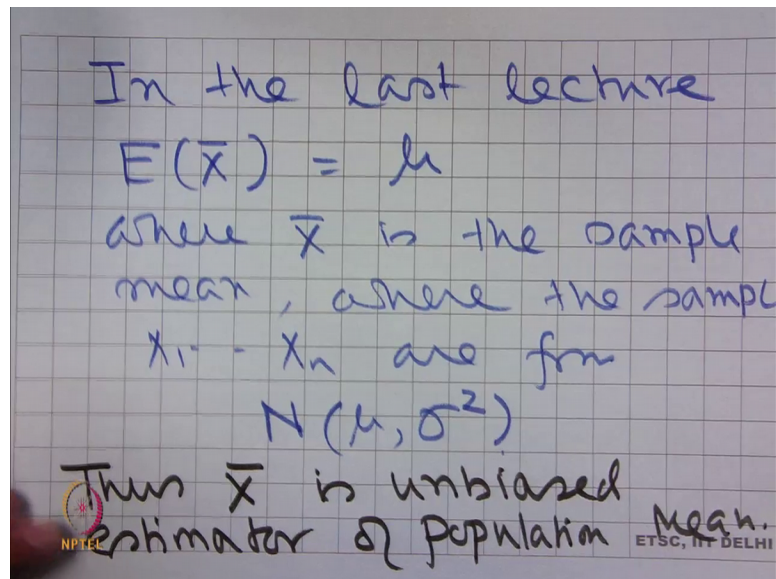 In the last lecture
E(X̄) = μ
where X̄ is the sample
mean, where the sampl
X₁ - - Xₙ are from
N(μ, σ²)
Thus X̄ is unbiased
estimator of population Mean.
NPTEL
ETSC, IIT DELHI